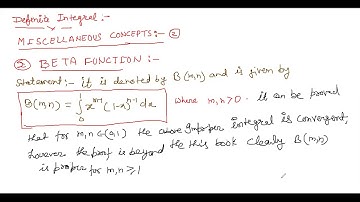 Definite Integral :-
MISCELLANEOUS CONCEPTS:- ②
② BETA FUNCTION:-
Statement:- it is denoted by B(m,n) and is given by
B(m,n) = ∫₀¹ x^(m-1) (1-x)^(n-1) dx where m,n>0. it can be proved
that for m,n ∈ (0,1) the above improper integral is convergent,
however the proof is beyond the this book clearly B(m,n)
is proper for m,n ≥ 1